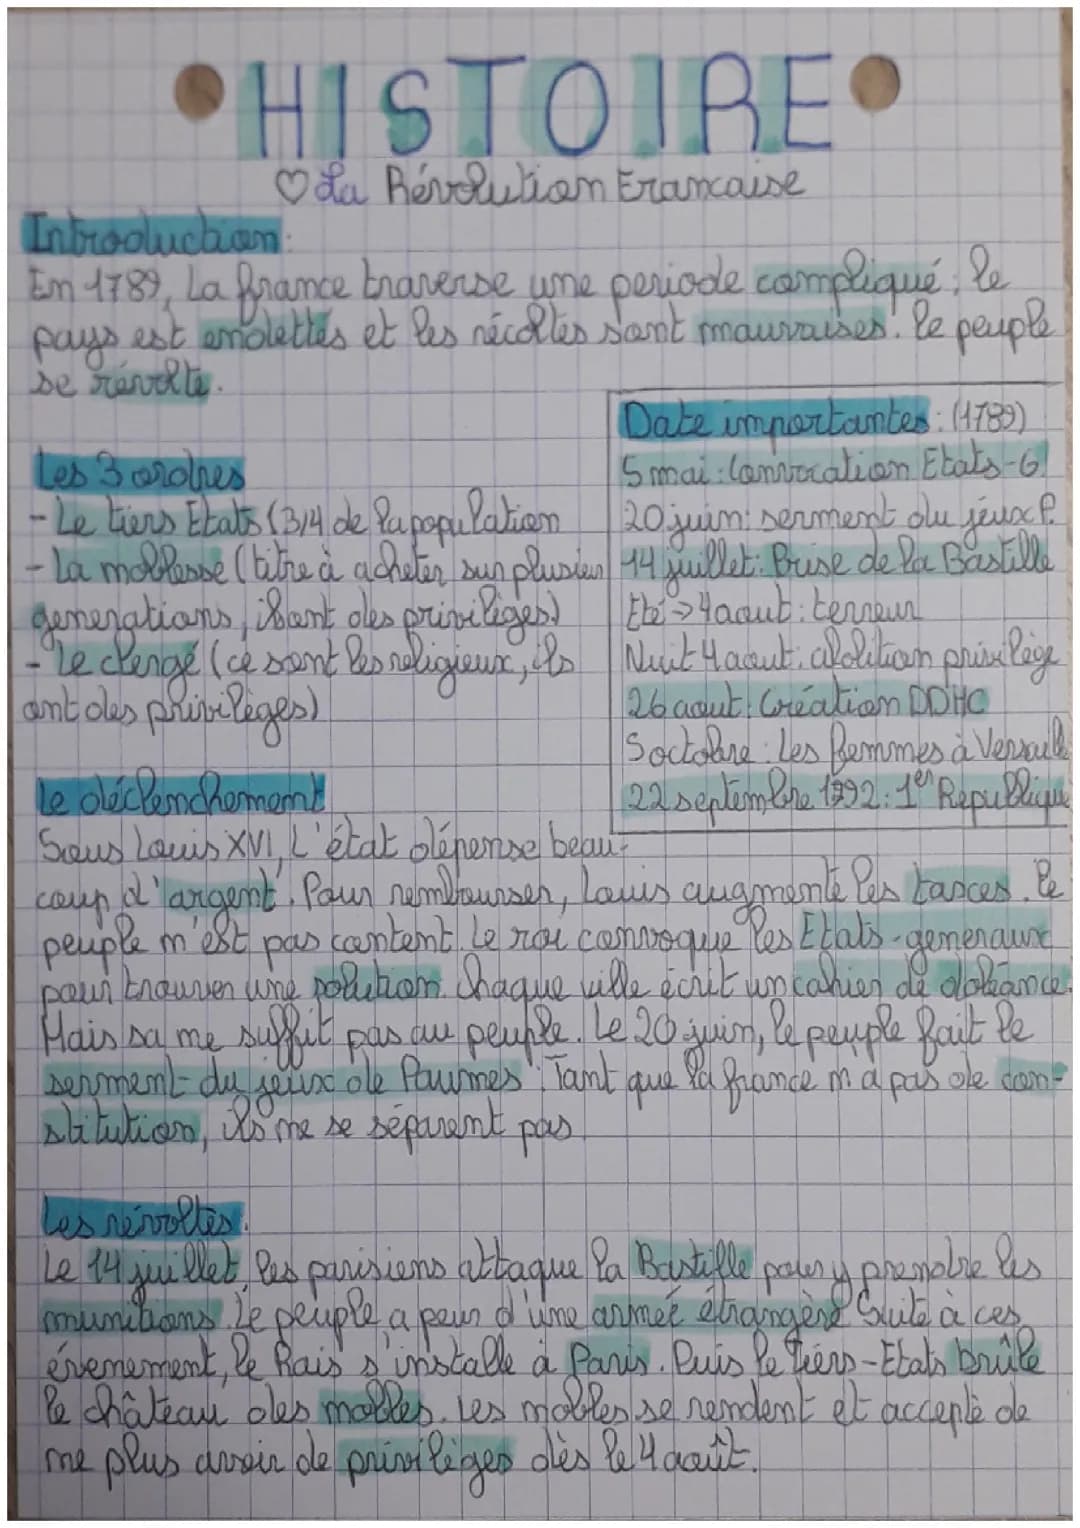 HISTOIRE
La Révolution Francaise
Introduction:
En 1789, La france traverse une periode compliqué; le
pays est endettés et les récoltes sont mauvaises. Le peuple
se révolte.
Les 3 ordres
- Le tiers Etats (3/4 de la population
- La noblesse (titre à acheter sur plusieu
generations, ils ont des privilèges)
- Le clergé (ce sont les religieux, ils
ont des privilèges)
Date importantes: (1789)
5 mai: Convocation Etats-G
20 juin: serment du jeux P.
14 juillet: Prise de la Bastille
Eté → 4 aout: terreur
Nuit 4 aout: abolition privilège
26 aout: Création DDHC
5 octobre: Les femmes à Versaill
22 septembre 1792: 1er République
Le déclenchement
Sous Louis XVI, L'état dépense beau-
coup d'argent. Pour rembourser, Louis augmente les taxces. Le
peuple n'est pas content. Le roi convoque les Etats-generaux
pour trouver une solution. Chaque ville écrit un cahier de doléance.
Mais sa ne suffit pas au peuple. Le 20 juin, le peuple fait le
serment du jeux de Paumes: Tant que la france n a pas de con-
stitution, ils ne se séparent pas
Les révoltes:
Le 14 juillet, les parisiens attaque la Bastille pour y prendre les
munitions. Le peuple a peur d'une armée étrangère. Suite à ces
évenement, le Rois s'installe à Paris. Puis le Tiers-Etats brûle
le château des nobles. Les nobles se rendent et accepte de
ne plus avoir de privilèges dès le 4 août.